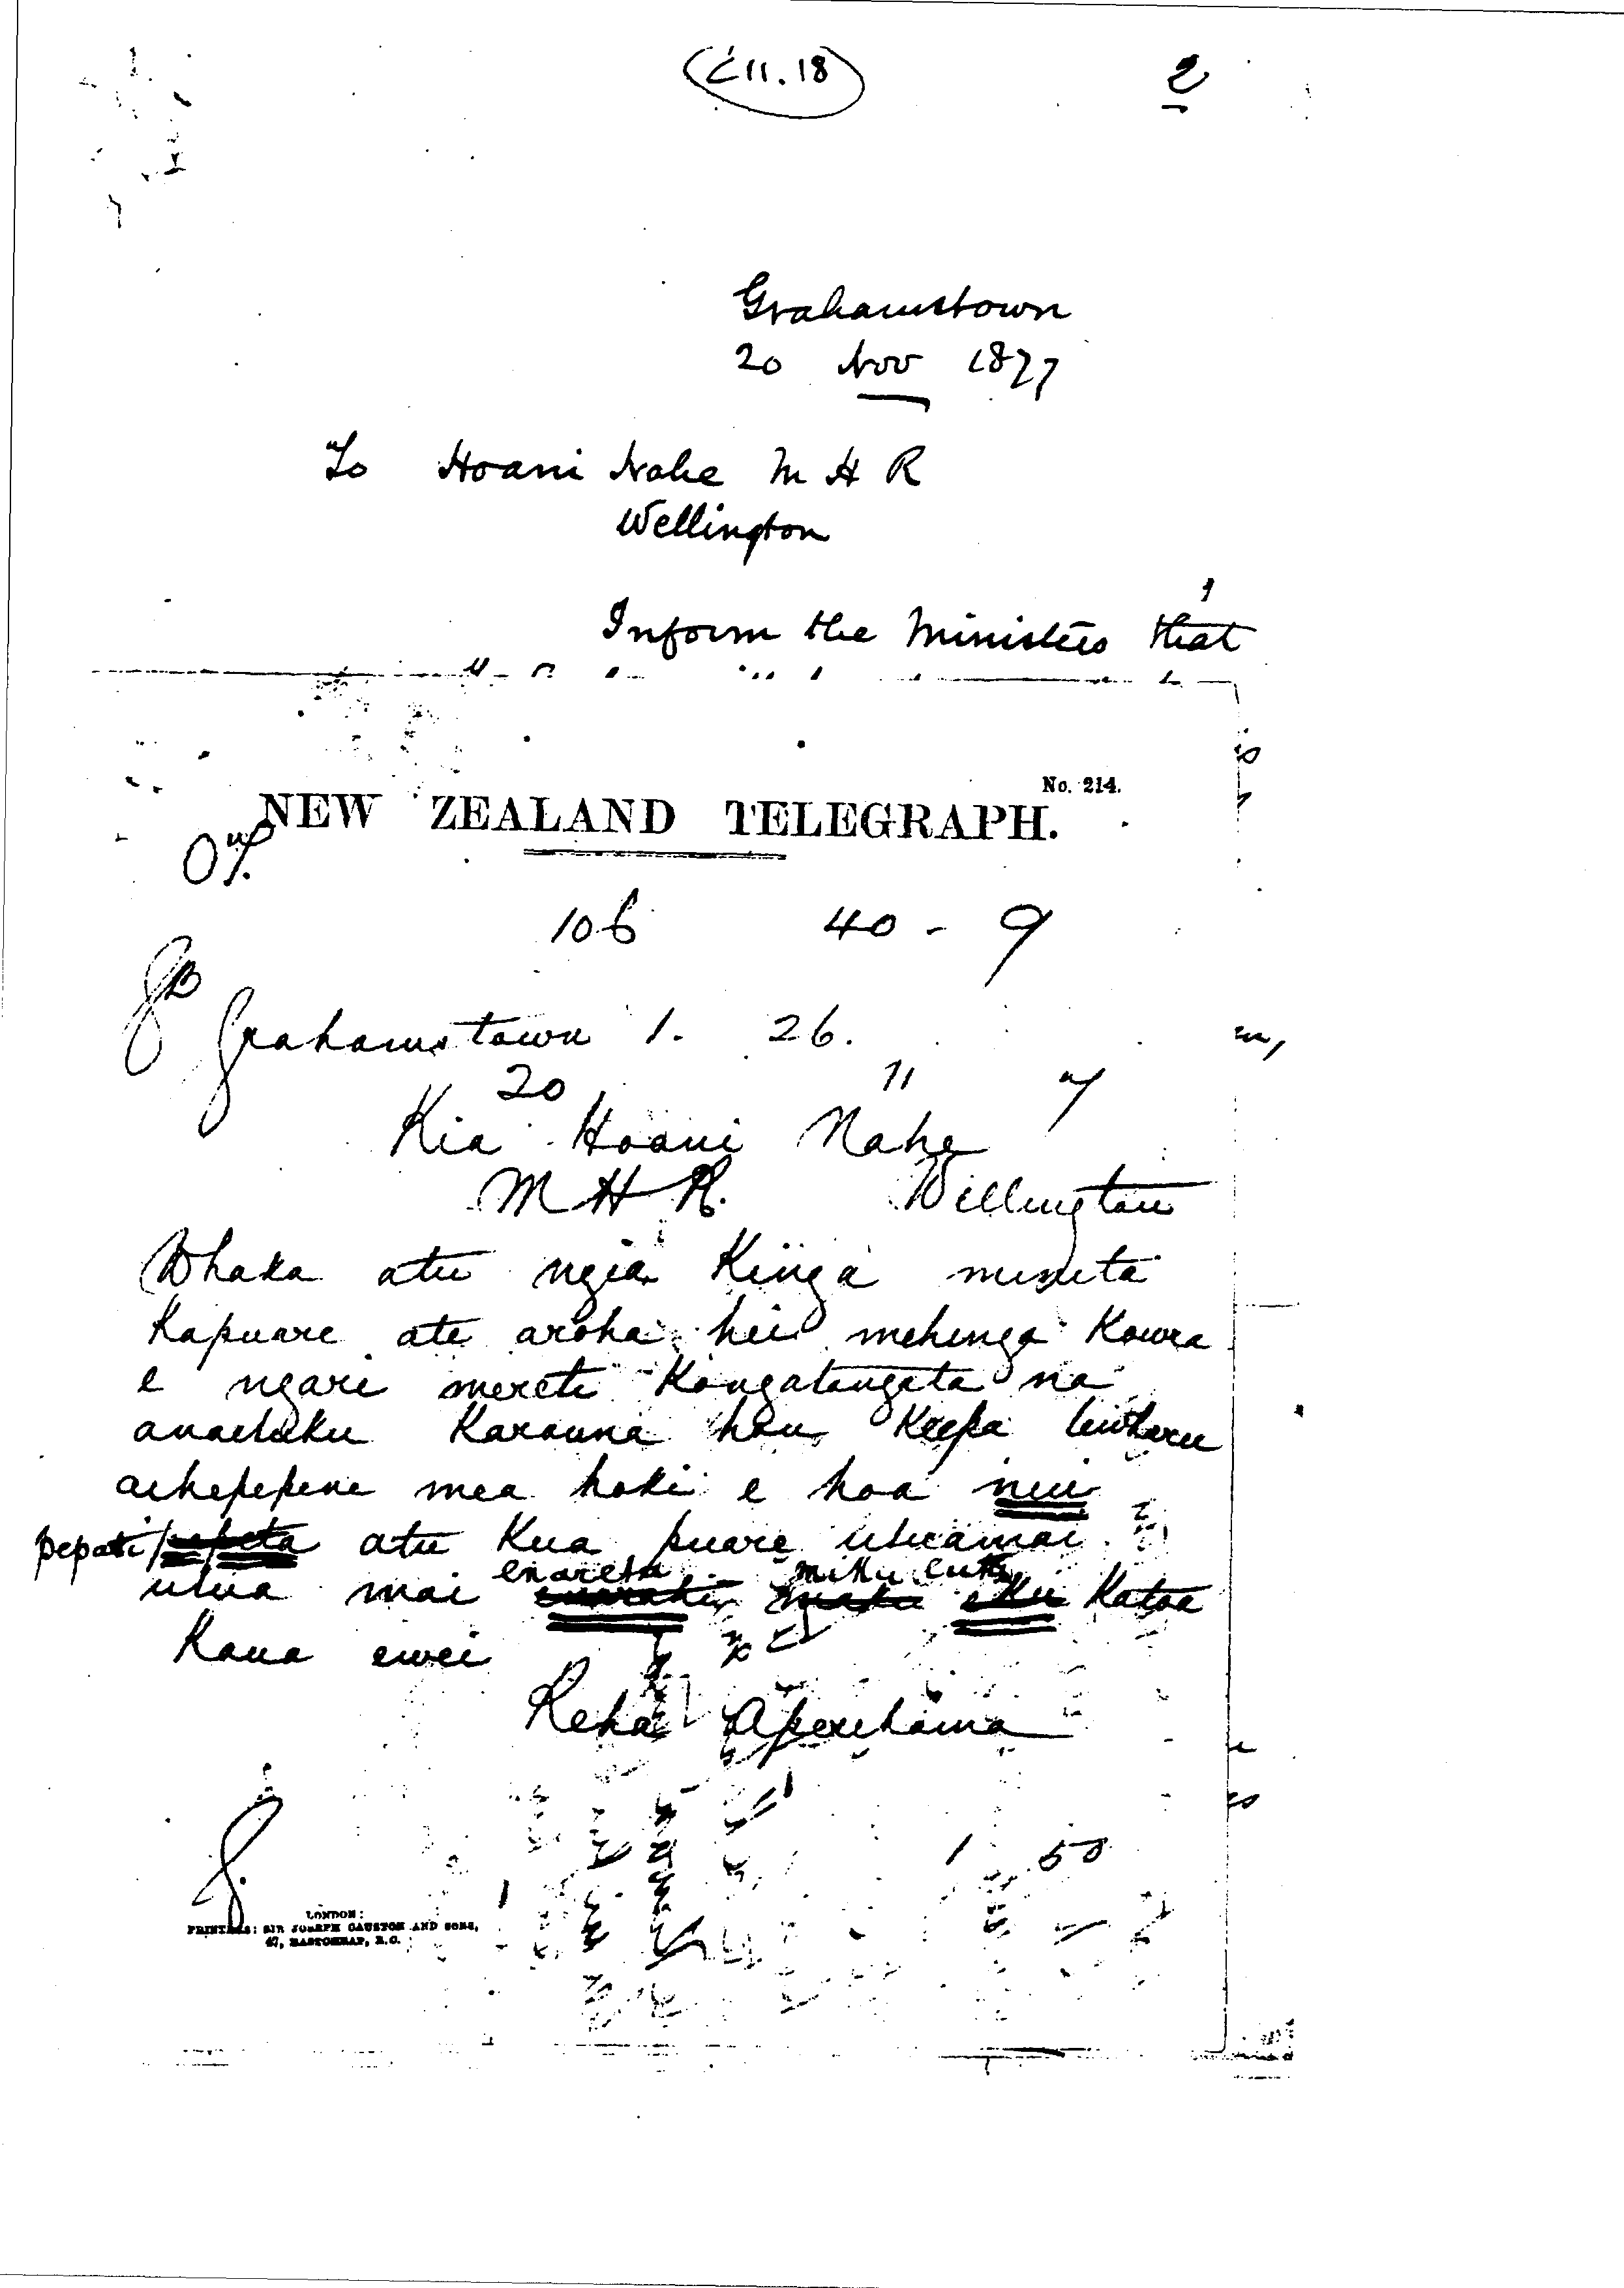 (E11.18)
2
Grahamstown
20 Nov 1877
To Hoani Nahe M H R
Wellington
Inform the Ministers that
No. 214.
NEW ZEALAND TELEGRAPH.
106 40 - 9
Grahamstown 1. 26.
20 11 7
Kia Hoani Nahe
M H R. Wellington
Whaka atu ngia Kinga mineta
Kapuare ate aroha hei mehinga Kowra
e ngari mereti Kongatangata na
Karauna hau Keepa
mea hoki e hoa nui
pepati atu Kua puare utuamai
utua mai enareta Katoa
Kaua ewei
Reha Aperehama
1 58
LONDON:
PRINTERS: SIR JOSEPH CAUSTON AND SONS,
47, EASTCHEAP, E.C.